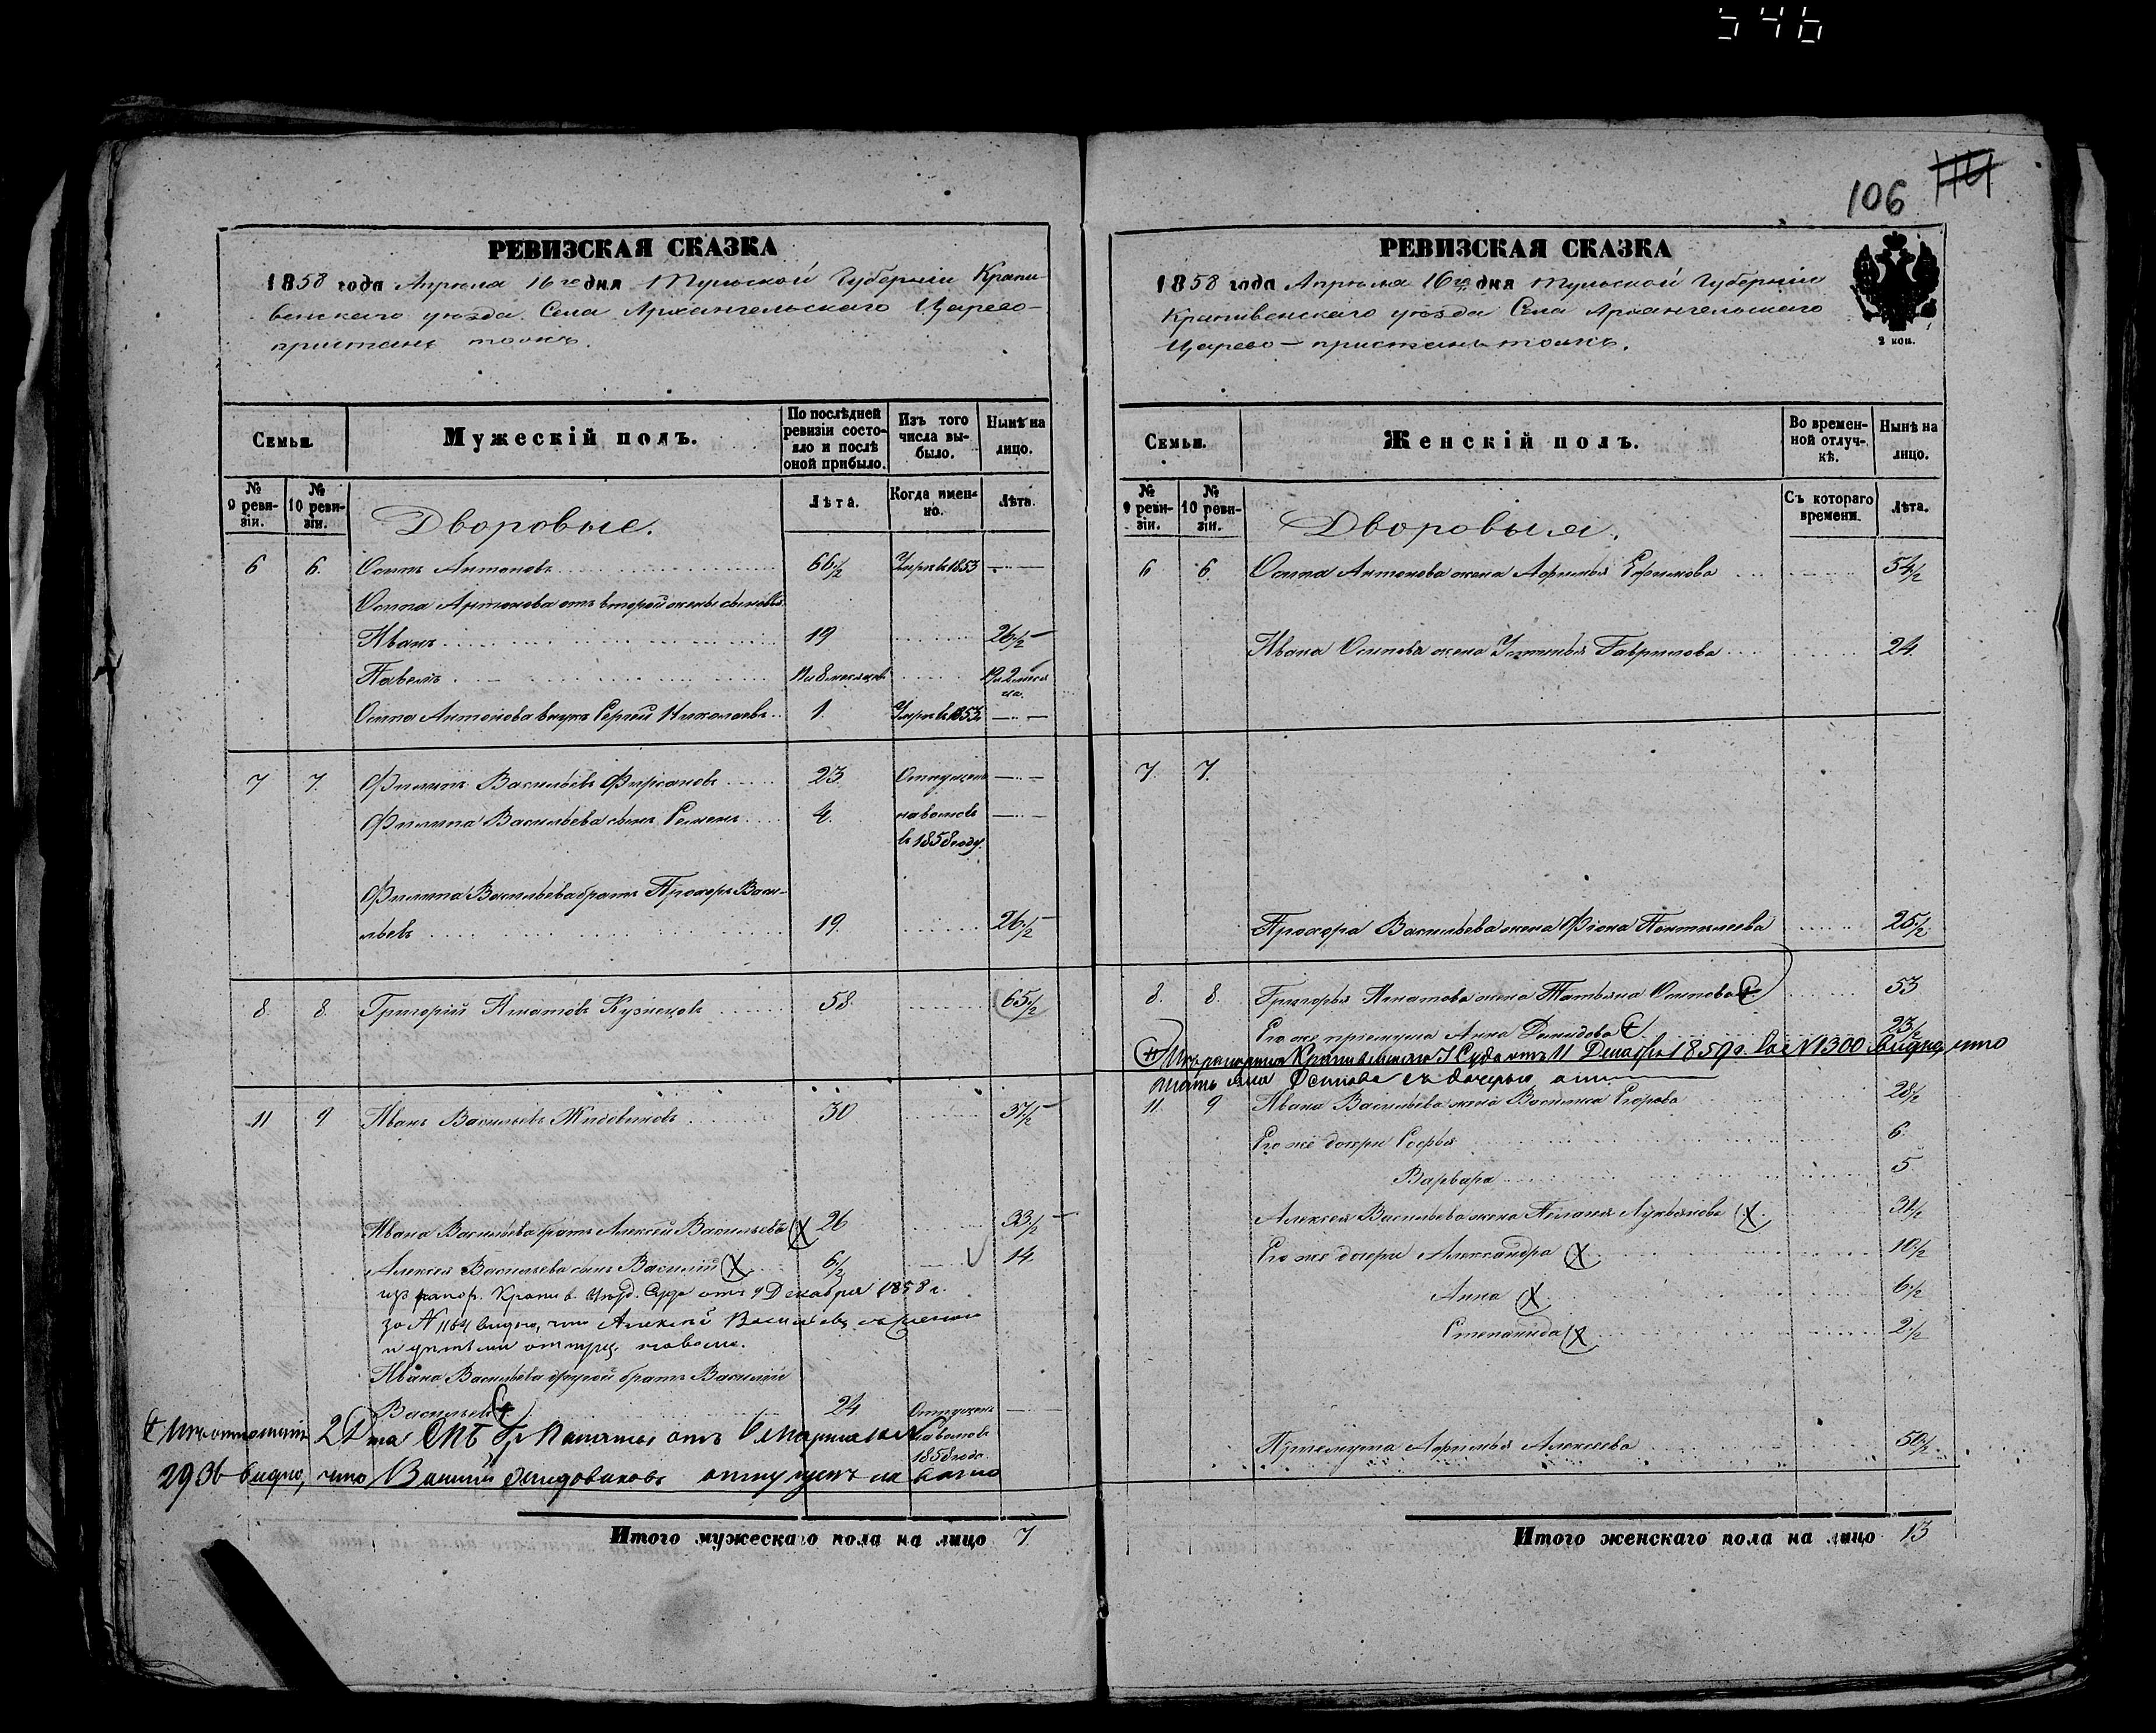 546
106 114
РЕВИЗСКАЯ СКАЗКА
1858 года Апреля 16го дня Тульской Губерніи Крапи-
венскаго уѣзда Села Архангельскаго Царево-
пристань тожъ.
Семьи.
Мужескій полъ.
По послѣдней ревизіи состо-
яло и послѣ оной прибыло.
Изъ того числа вы-
было.
Нынѣ на лицо.
№ 9 реви-
зіи.
№ 10 реви-
зіи.
Дворовые.
Лѣта.
Когда имен-
но.
Лѣта.
6 6. Осипъ Антоновъ 66 1/2 Умеръ въ 1853
Осипа Антонова отъ второй жены сыновья
Иванъ 19 26 1/2
Павелъ
Осипа Антонова внукъ Сергей Николаевъ 1. Умеръ въ 1853
7 7. Филипъ Васильевъ Фирсановъ 23 Отпущенъ
Филипа Васильева сынъ Семенъ 4. на волю
въ 1858 году.
Филипа Васильева братъ Прохоръ Васи-
льевъ 19. 26 1/2
8. 8. Григорий Игнатовъ Кузнецовъ 58 65 1/2
11 9 Иванъ Васильевъ Жидовиковъ 30 37 1/2
Ивана Васильева братъ Алексей Васильевъ 26 33 1/2
Алексея Васильева сынъ Василий 6 1/2 14.
из рапор. Крапив. Уѣзд. Суда отъ 9 Декабря 1858 г.
за № 1164 видно, что Алексей Васильевъ съ женою
и детьми отпущ. на волю.
Ивана Васильева другой братъ Василий
Васильевъ 24 Отпущенъ
на волю въ
1858 года.
2936 видно, что Василий Жидовиковъ отпущенъ на волю
Итого мужескаго пола на лицо 7
РЕВИЗСКАЯ СКАЗКА
1858 года Апреля 16го дня Тульской Губерніи
Крапивенскаго уѣзда Села Архангельскаго
Царево-пристань тожъ.
2 коп.
Семьи.
Женскій полъ.
Во времен-
ной отлуч-
кѣ.
Нынѣ на лицо.
№ 9 реви-
зіи.
№ 10 реви-
зіи.
Дворовыя.
Съ котораго времени.
Лѣта.
6 6. Осипа Антонова жена Афимья Ефимова 54 1/2
Ивана Осипова жена Устинья Гаврилова 24.
7. 7.
Прохора Васильева жена Фіона Пантелеева 25 1/2
8. 8. Григорья Игнатова жена Татьяна Осипова 53
Его же пріемуша Анна Демидова 23 1/2
Изъ рапорта Крапивенскаго У Суда отъ 11 Декабря 1859 г. за № 1300 видно, что
Осипова съ дочерью
11. 9 Ивана Васильева жена Василиса Егорова 28 1/2
Его же дочери Софья 6.
Варвара 5
Алексея Васильева жена Пелагея Лукьянова 31 1/2
Его же дочери Александра 10 1/2
Анна 6 1/2
Степанида 2 1/2
Пріемуша Афимья Алексеева 50 1/2
Итого женскаго пола на лицо 13